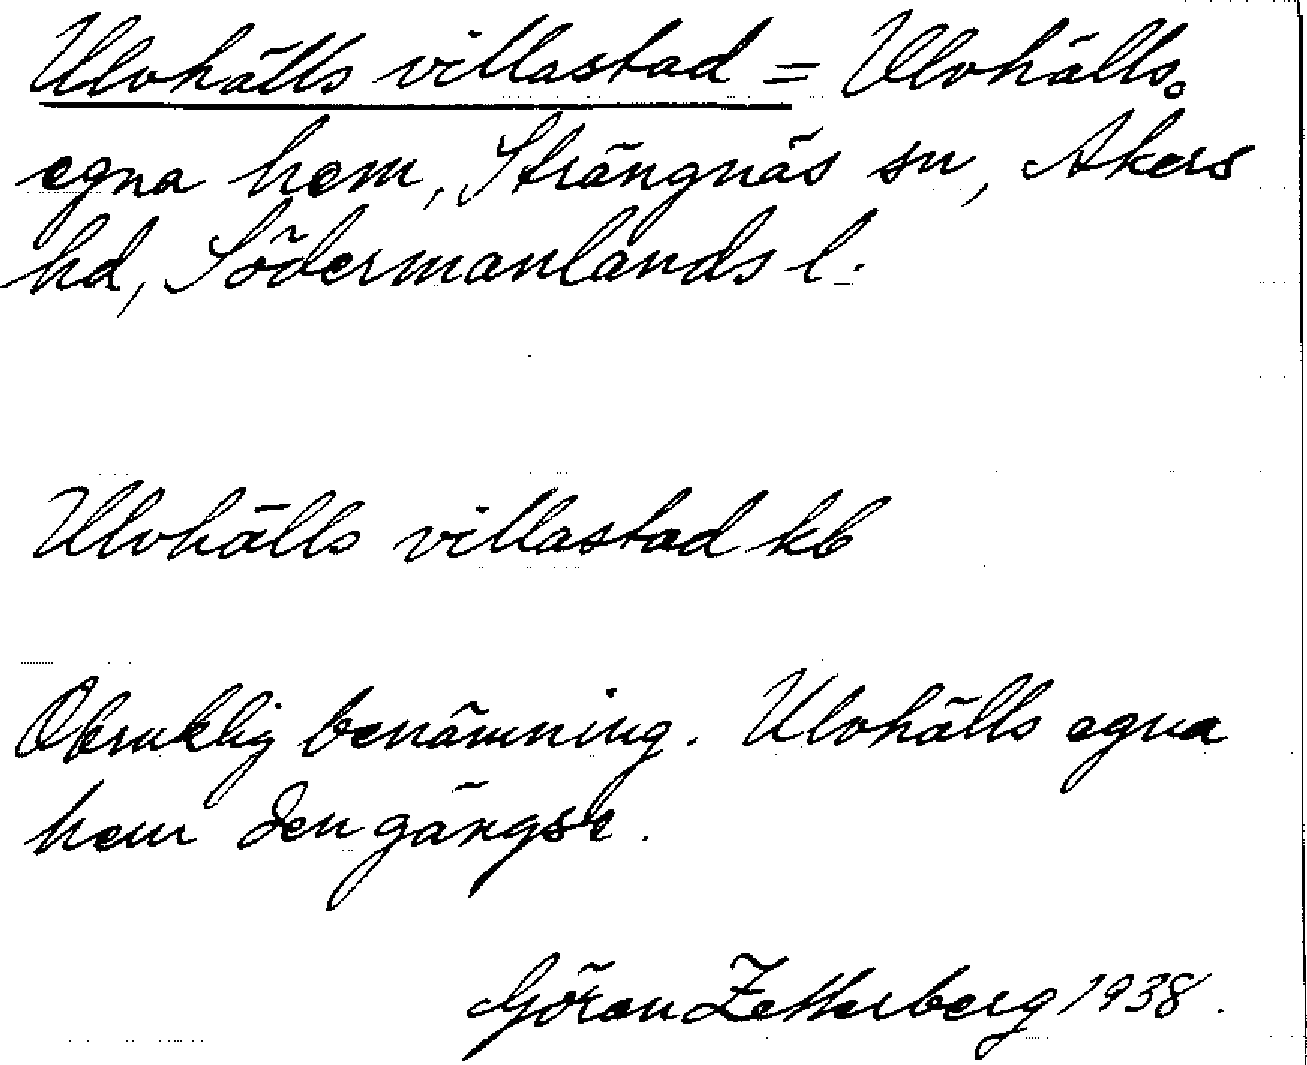 Ulvhälls villastad = Ulvhälls
egna hem, Strängnäs sn, Åkers
hd, Södermanlands l.
Ulvhälls villastad kb
Obruklig benämning. Ulvhälls egna
hem den gängse.
Göran Zetterberg 1938.